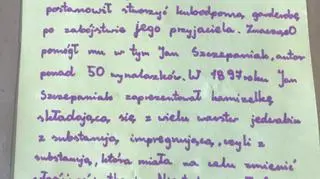 postanowił stworzyć kuloodporną garderobę
po zabójstwie jego przyjaciela. Znacząco
pomógł mu w tym Jan Szczepaniak, autor
ponad 50 wynalazków. W 1897 roku Jan
Szczepaniak zaprezentował kamizelkę
składającą się z wielu warstw jedwabiu
z substancją impregnującą, czyli z
substancją, która miała na celu zmienić